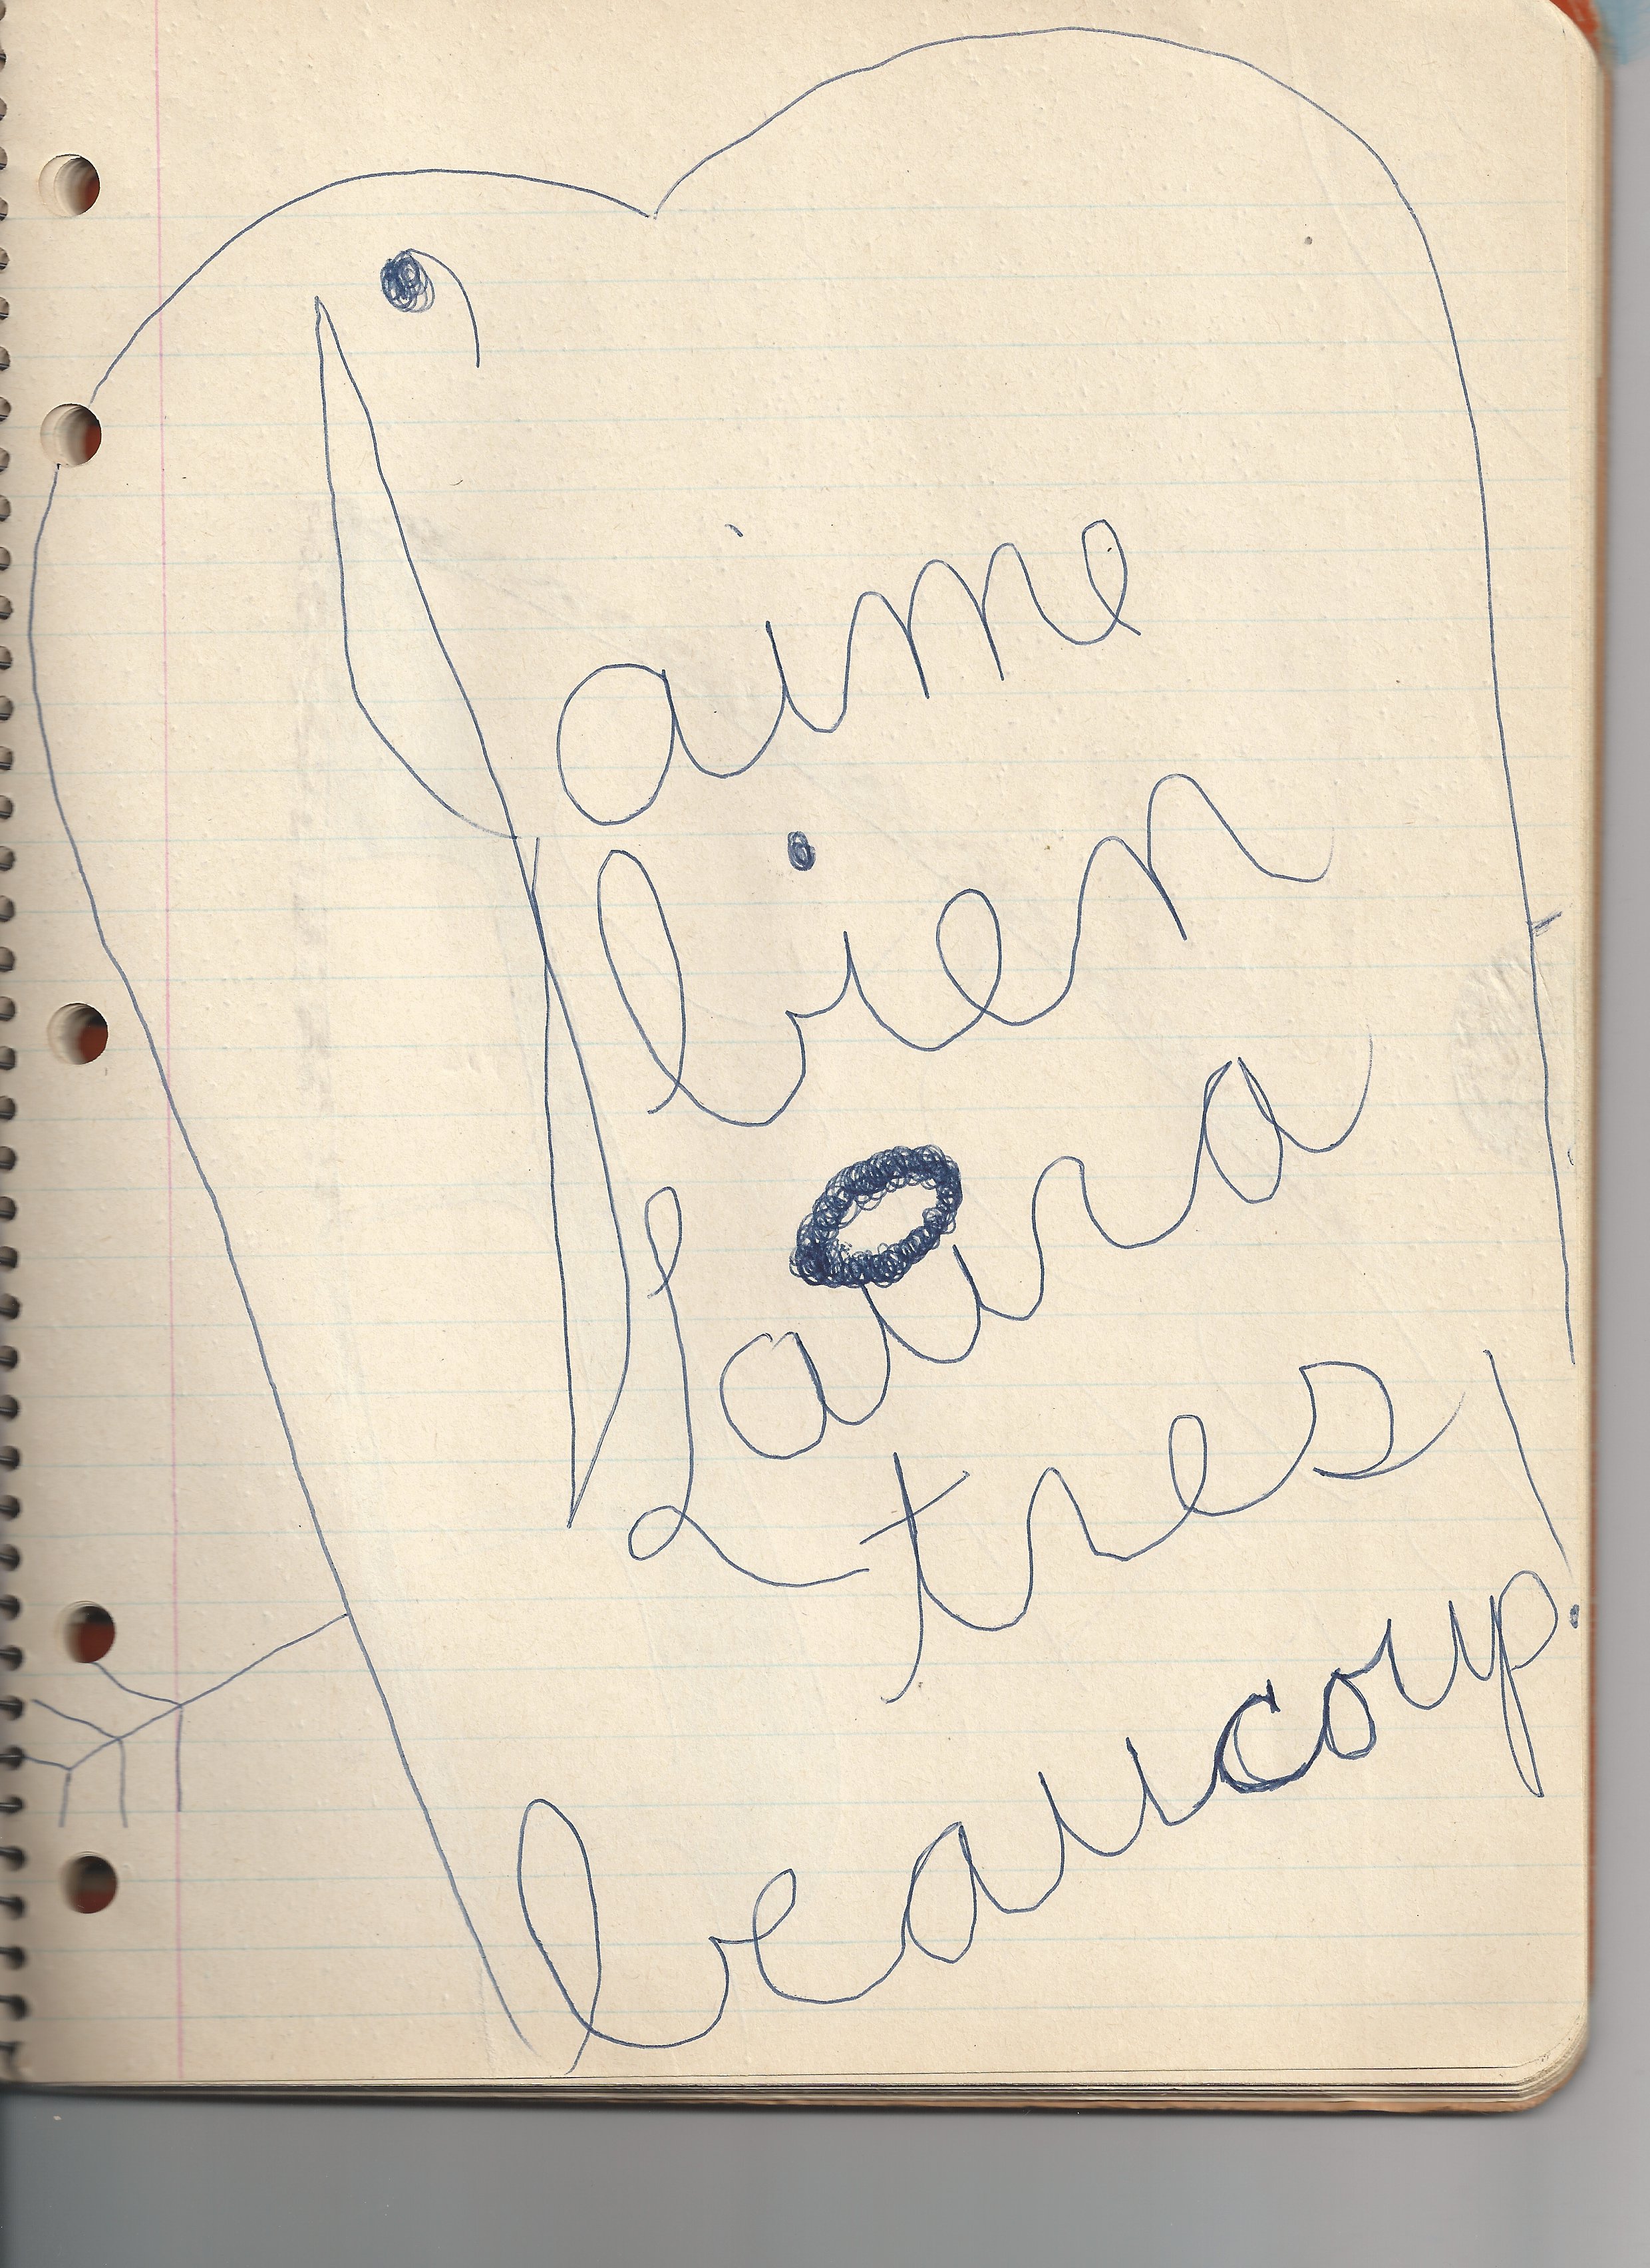 J'aime
bien
Laura
tres
beaucoup!